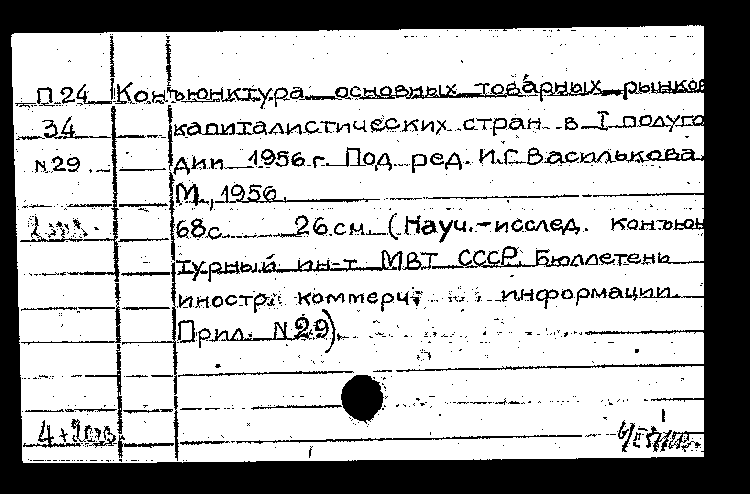 П24 Конъюнктура основных товарных рынков
34 капиталистических стран в I полуго
N29. дии 1956г. Под ред. И.Г. Василькова.
М., 1956.
68с. 26см. (Науч.-исслед. конъюн
турный ин-т МВТ СССР. Бюллетень
иностр. коммерч. информации.
Прил. N29).